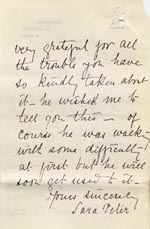 very grateful for all
the trouble you have
so kindly taken about
it - he wished me to
tell you this - of
course he was weak -
with some difficulty
at first but he will
soon get used to it -
Yours sincerely
Sara